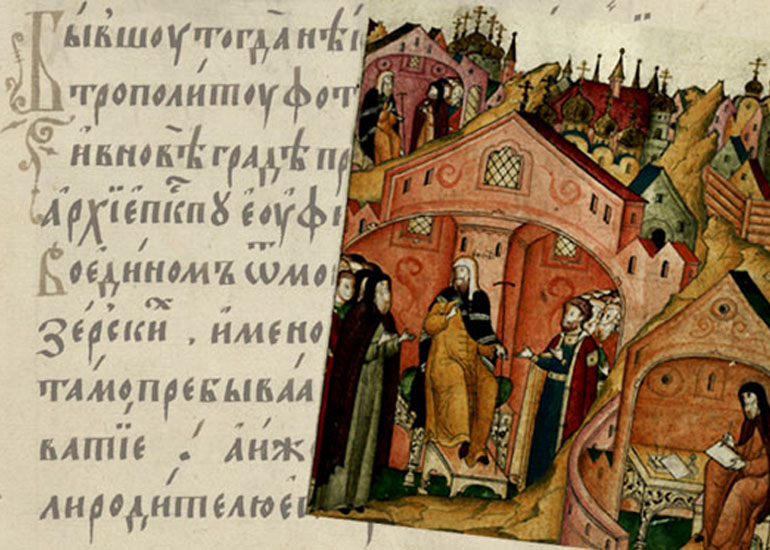 Бы́вшоу тогда̀ нѣ
трополи́тоу фот
И҆ в новѣ гра́дѣ пр
а҆рхїе҆п҇кпꙋ є҆оуфи
Воеди́номъ ѿ мо
зе́рски . и҆мено
та́мо пребыва́а
ватїе . а҆ ни́ж
ли роди́телю е